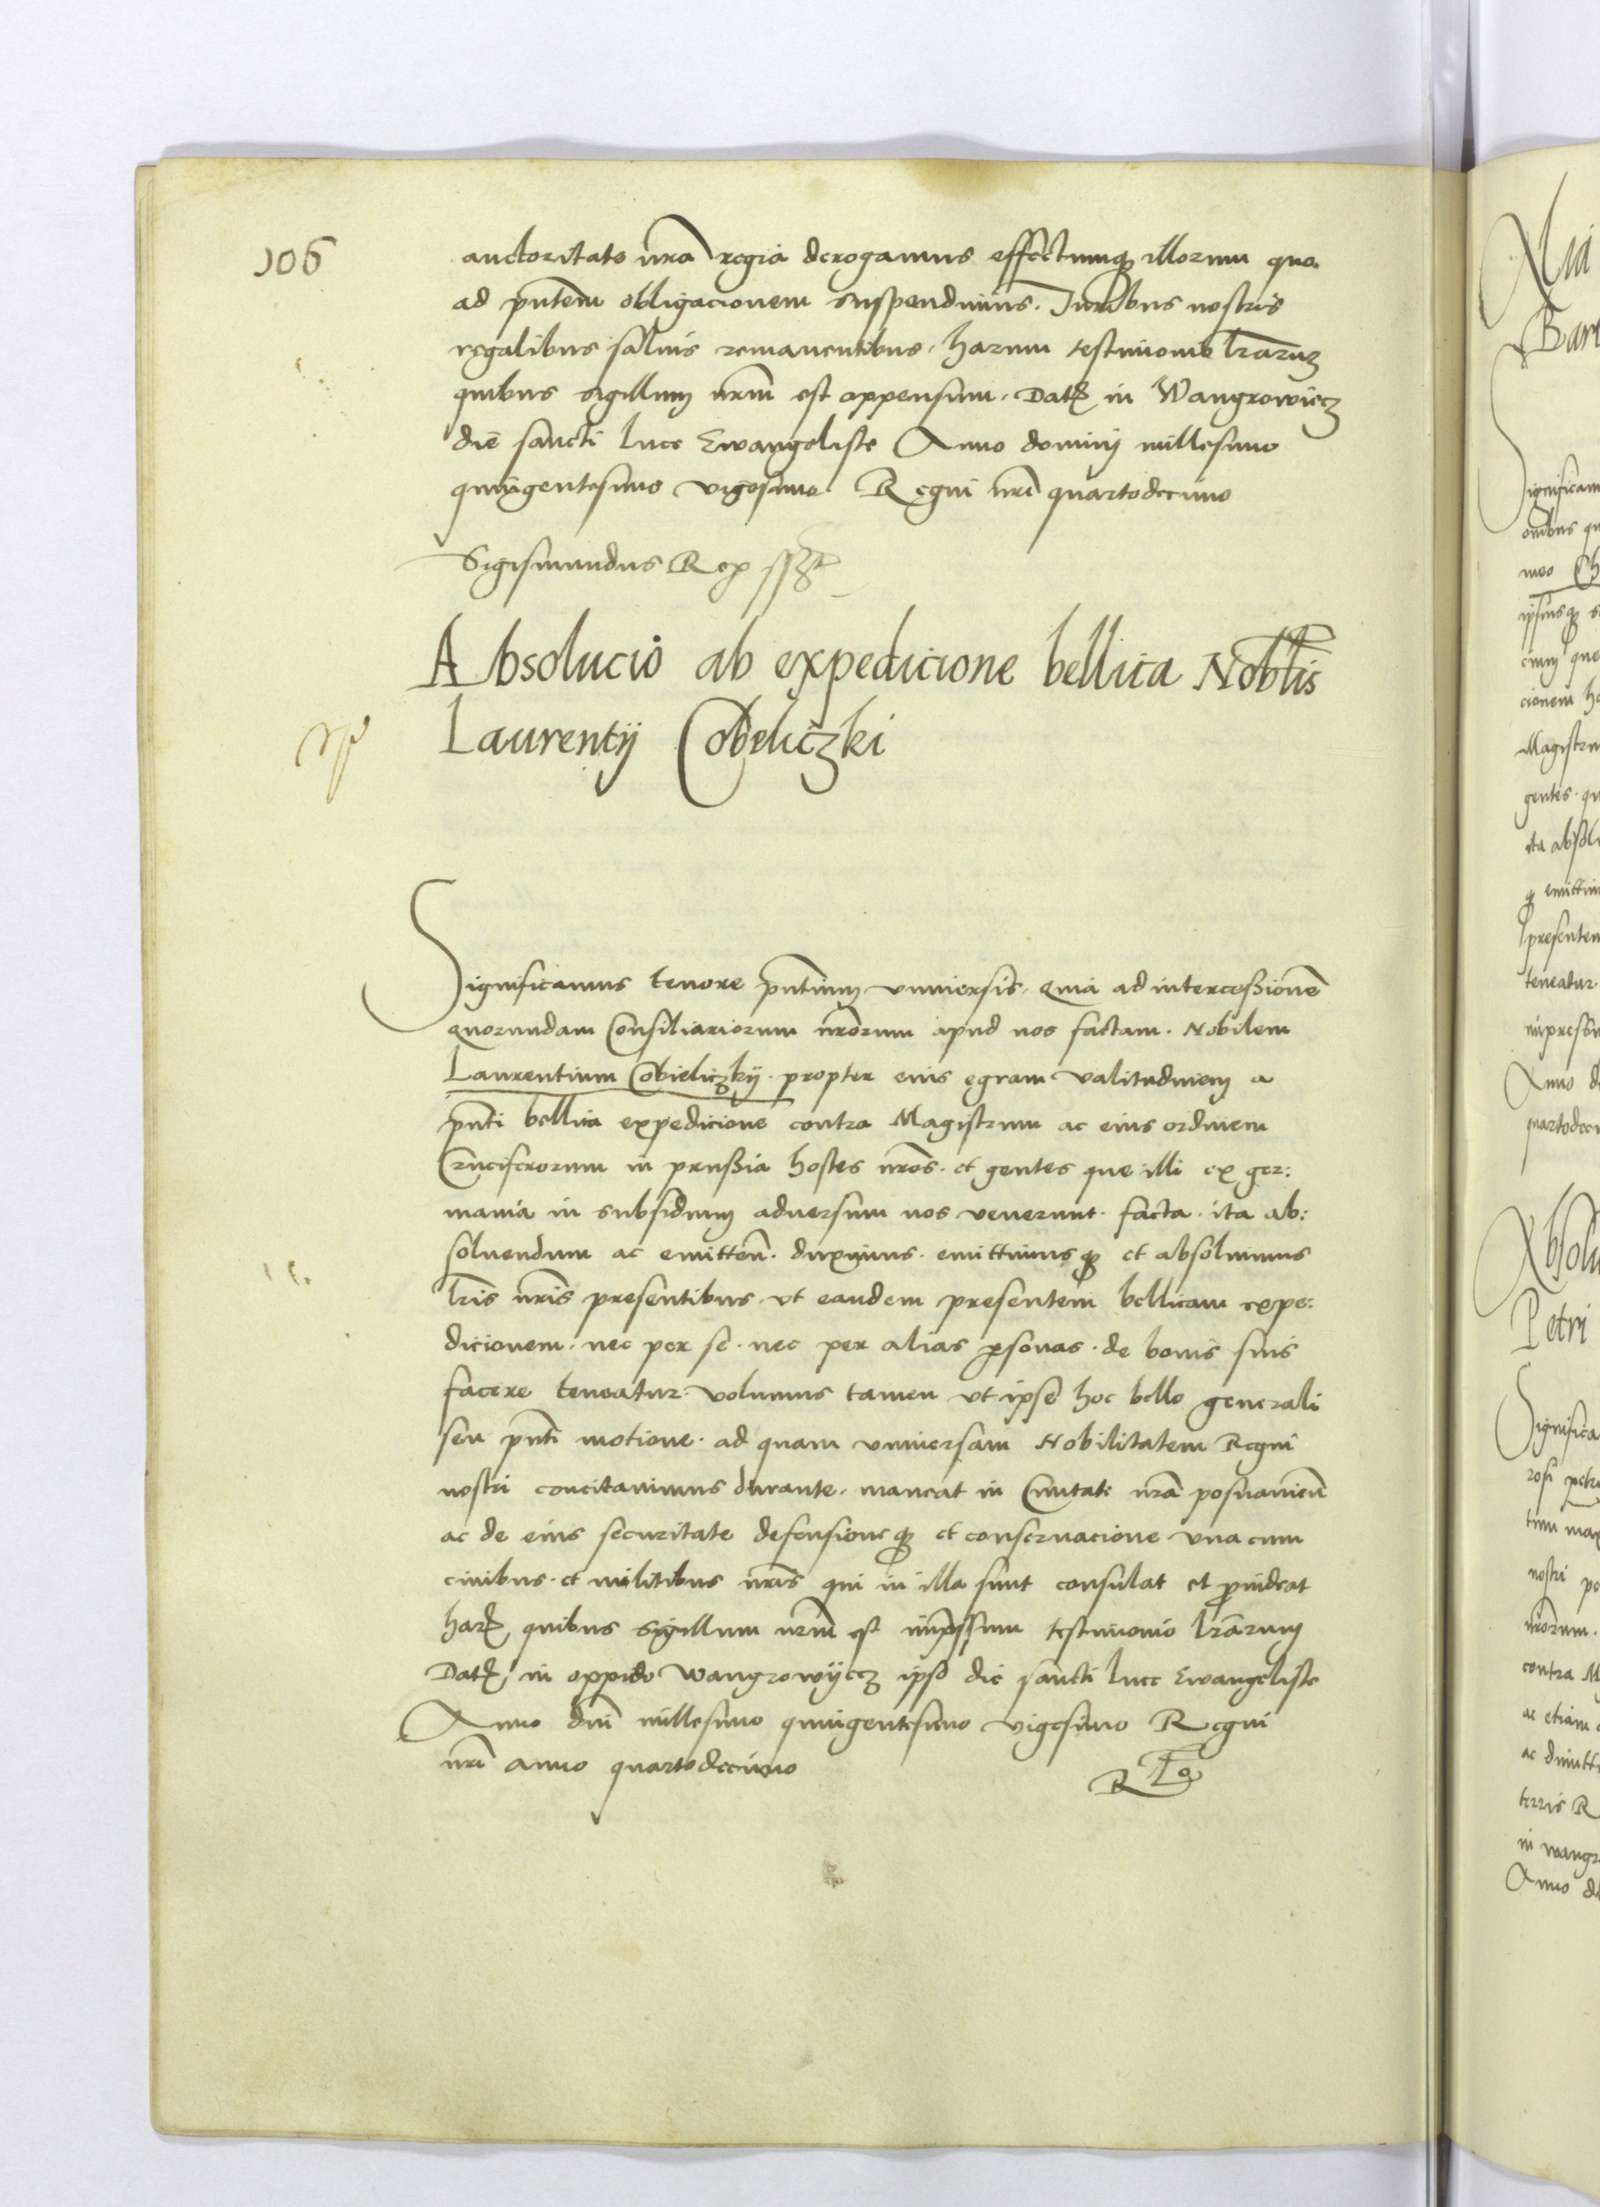 106
auctoritate nrã regia derogamus effectumq illorum quo.
ad pñtem obligacionem suspendimus. Iuribus nostris
regalibus salvis remanentibus. harum testimonio lrarum
quibus sigillum nrm est appensum. Dat in Wangrowiecz
die sancti luce Ewangeliste Anno domini millesimo
quingentesimo vigesimo Regni nri quartodecimo
Sigismundus Rex sst
Absolucio ab expedicione bellica Nobilis
Laurentij Cobeliczki
Significamus tenore pñtium universis. Quia ad intercessionem
quorundam Consiliariorum nrorum apud nos factam. Nobilem
Laurentium Cobieliczkij. propter eius egram valitudinem a
pñti bellica expedicione contra Magistrum ac eius ordinem
Cruciferorum in prussia hostes nros. et gentes que illi ex ger:
mania in subsidium adversum nos venerunt. facta. ita ab:
soluendum ac emitteñ. duximus. emittimusq et absoluimus
lris nris presentibus. vt eandem presentem bellicam expe:
dicionem. nec per se. nec per alias psonas. de bonis suis
facere teneatur. volumus tamen vt ipse hoc bello generali
seu pñti motione. ad quam vniuersam Nobilitatem Regni
nostri concitauimus durante. maneat in Ciuitate nrã posnanień
ac de eius securitate defensioneq et conseruacione vna cum
ciuibus. et militibus nris qui in illa sunt consulat et prouideat
har quibus sigillum nrm est impssum testimonio lrarum
Dat in oppido wangrowijecz ipso die sancti luce Ewangeliste
Anno dni millesimo quingentesimo vigesimo Regni
nri anno quartodecimo
Bart
Significam
Magistru
gentes. qu
ita absol
presentem
teneatur.
Anno d
Absolu
Petri
Significa
nostri po
nrorum.
contra M
ac etiam
terris R
in wangr
Anno d